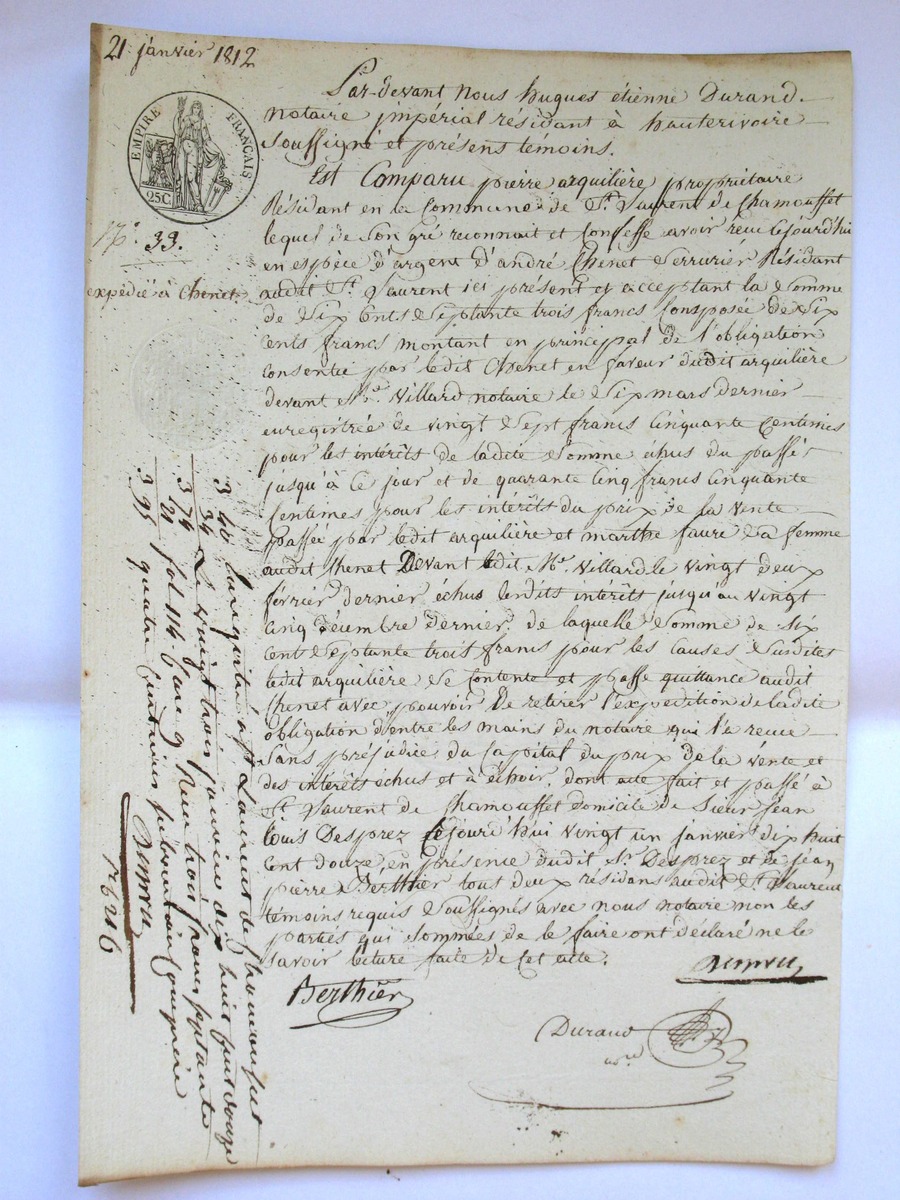 21 janvier 1812
EMPIRE FRANÇAIS
25C.
N°. 33.
expédié à Chenet.
Par-devant Nous hugues étienne Durand
notaire jmpérial résidant à hauterivoire
soussigné et présens temoins.
Est Comparu pierre arquilière propriétaire
Résidant en la Commune de St. Laurent de Chamousset
lequel de son gré reconnait et confesse avoir recu cejourd'hui
en espèce d'argent d'andré Chenet Serrurier Résidant
audit St. Laurent ici présent et acceptant la somme
de six cents septante trois francs Composée de six
cents francs montant en principal de l'obligation
consentie par ledit Chenet en faveur dudit arquilière
devant Me. Villard notaire le six mars dernier
enregistrée de vingt sept francs cinquante Centimes
pour les intérêts de ladite somme échus du passé
jusqu'à ce jour et de quarante cinq francs cinquante
Centimes pour les intérêts du prix de la vente
passée par ledit arquilière et marthe faure sa femme
audit Chenet Devant ledit Me. Villard le vingt deux
février dernier échus lesdits intérêts jusqu'au vingt
cinq décembre dernier. de laquelle somme de six
cent septante trois francs pour les causes susdites
ledit arquilière se contente et passe quittance audit
Chenet avec pouvoir De retirer l'expedition de ladite
obligation d'entre les mains du notaire qui l'a recue
sans préjudice du Capital du prix de la vente et
des intérêts échus et à échoir. dont acte fait et passé à
St. Laurent de chamousset domicile de sieur jean
louis Desprez cejourd'hui vingt un janvier dix huit
cent douze, en présence dudit Sr. Desprez et de jean
pierre Berthier tous deux résidans audit St. Laurent
témoins requis soussignés avec nous notaire non les
parties qui sommées de le faire ont déclaré ne le
savoir lecture faite de cet acte.
Berthier
Durand
nore
3 40 Enregistré à St Laurent de Chamousset
34 Le vingt trois janvier dix huit cent douze
3 74 fol 114 Case 9 Recu trois francs septante
21 quatre Centimes
3 95